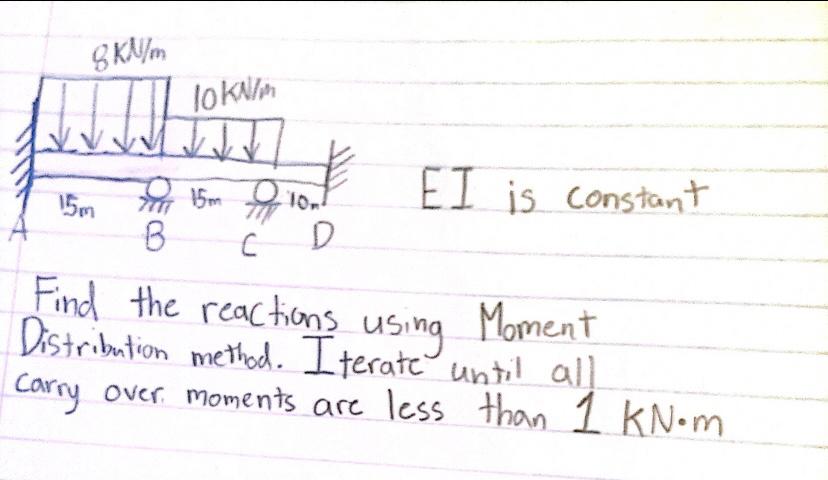 8 KN/m
10 KN/m
15m 15m 10m
A B C D
EI is constant
Find the reactions using Moment
Distribution method. Iterate until all
carry over moments are less than 1 KN·m